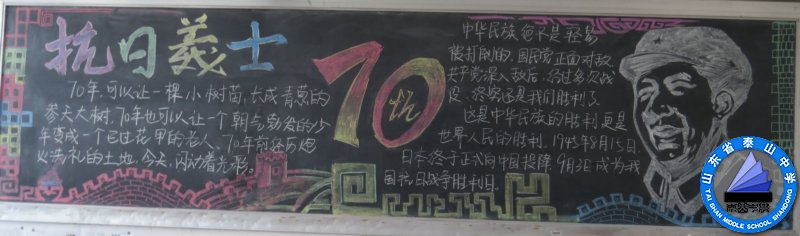 抗日義士
70年,可以让一棵小树苗,长成青葱的
参天大树,70年也可以让一个朝气勃发的少
年变成一个已过花甲的老人。70年前经历炮
火洗礼的土地,今天,闪动着光彩。
70
抗
中华民族绝不是轻易
被打倒的,国民党正面对敌
共产党深入敌后,经过多次战
役,终究还是我们胜利了
这是中华民族的胜利,更是
世界人民的胜利,1945年8月15日
日本终于正式向中国投降,9月3日成为我
国抗日战争胜利日。
山东省泰山中学
TAI SHAN MIDDLE SCHOOL SHANDONG